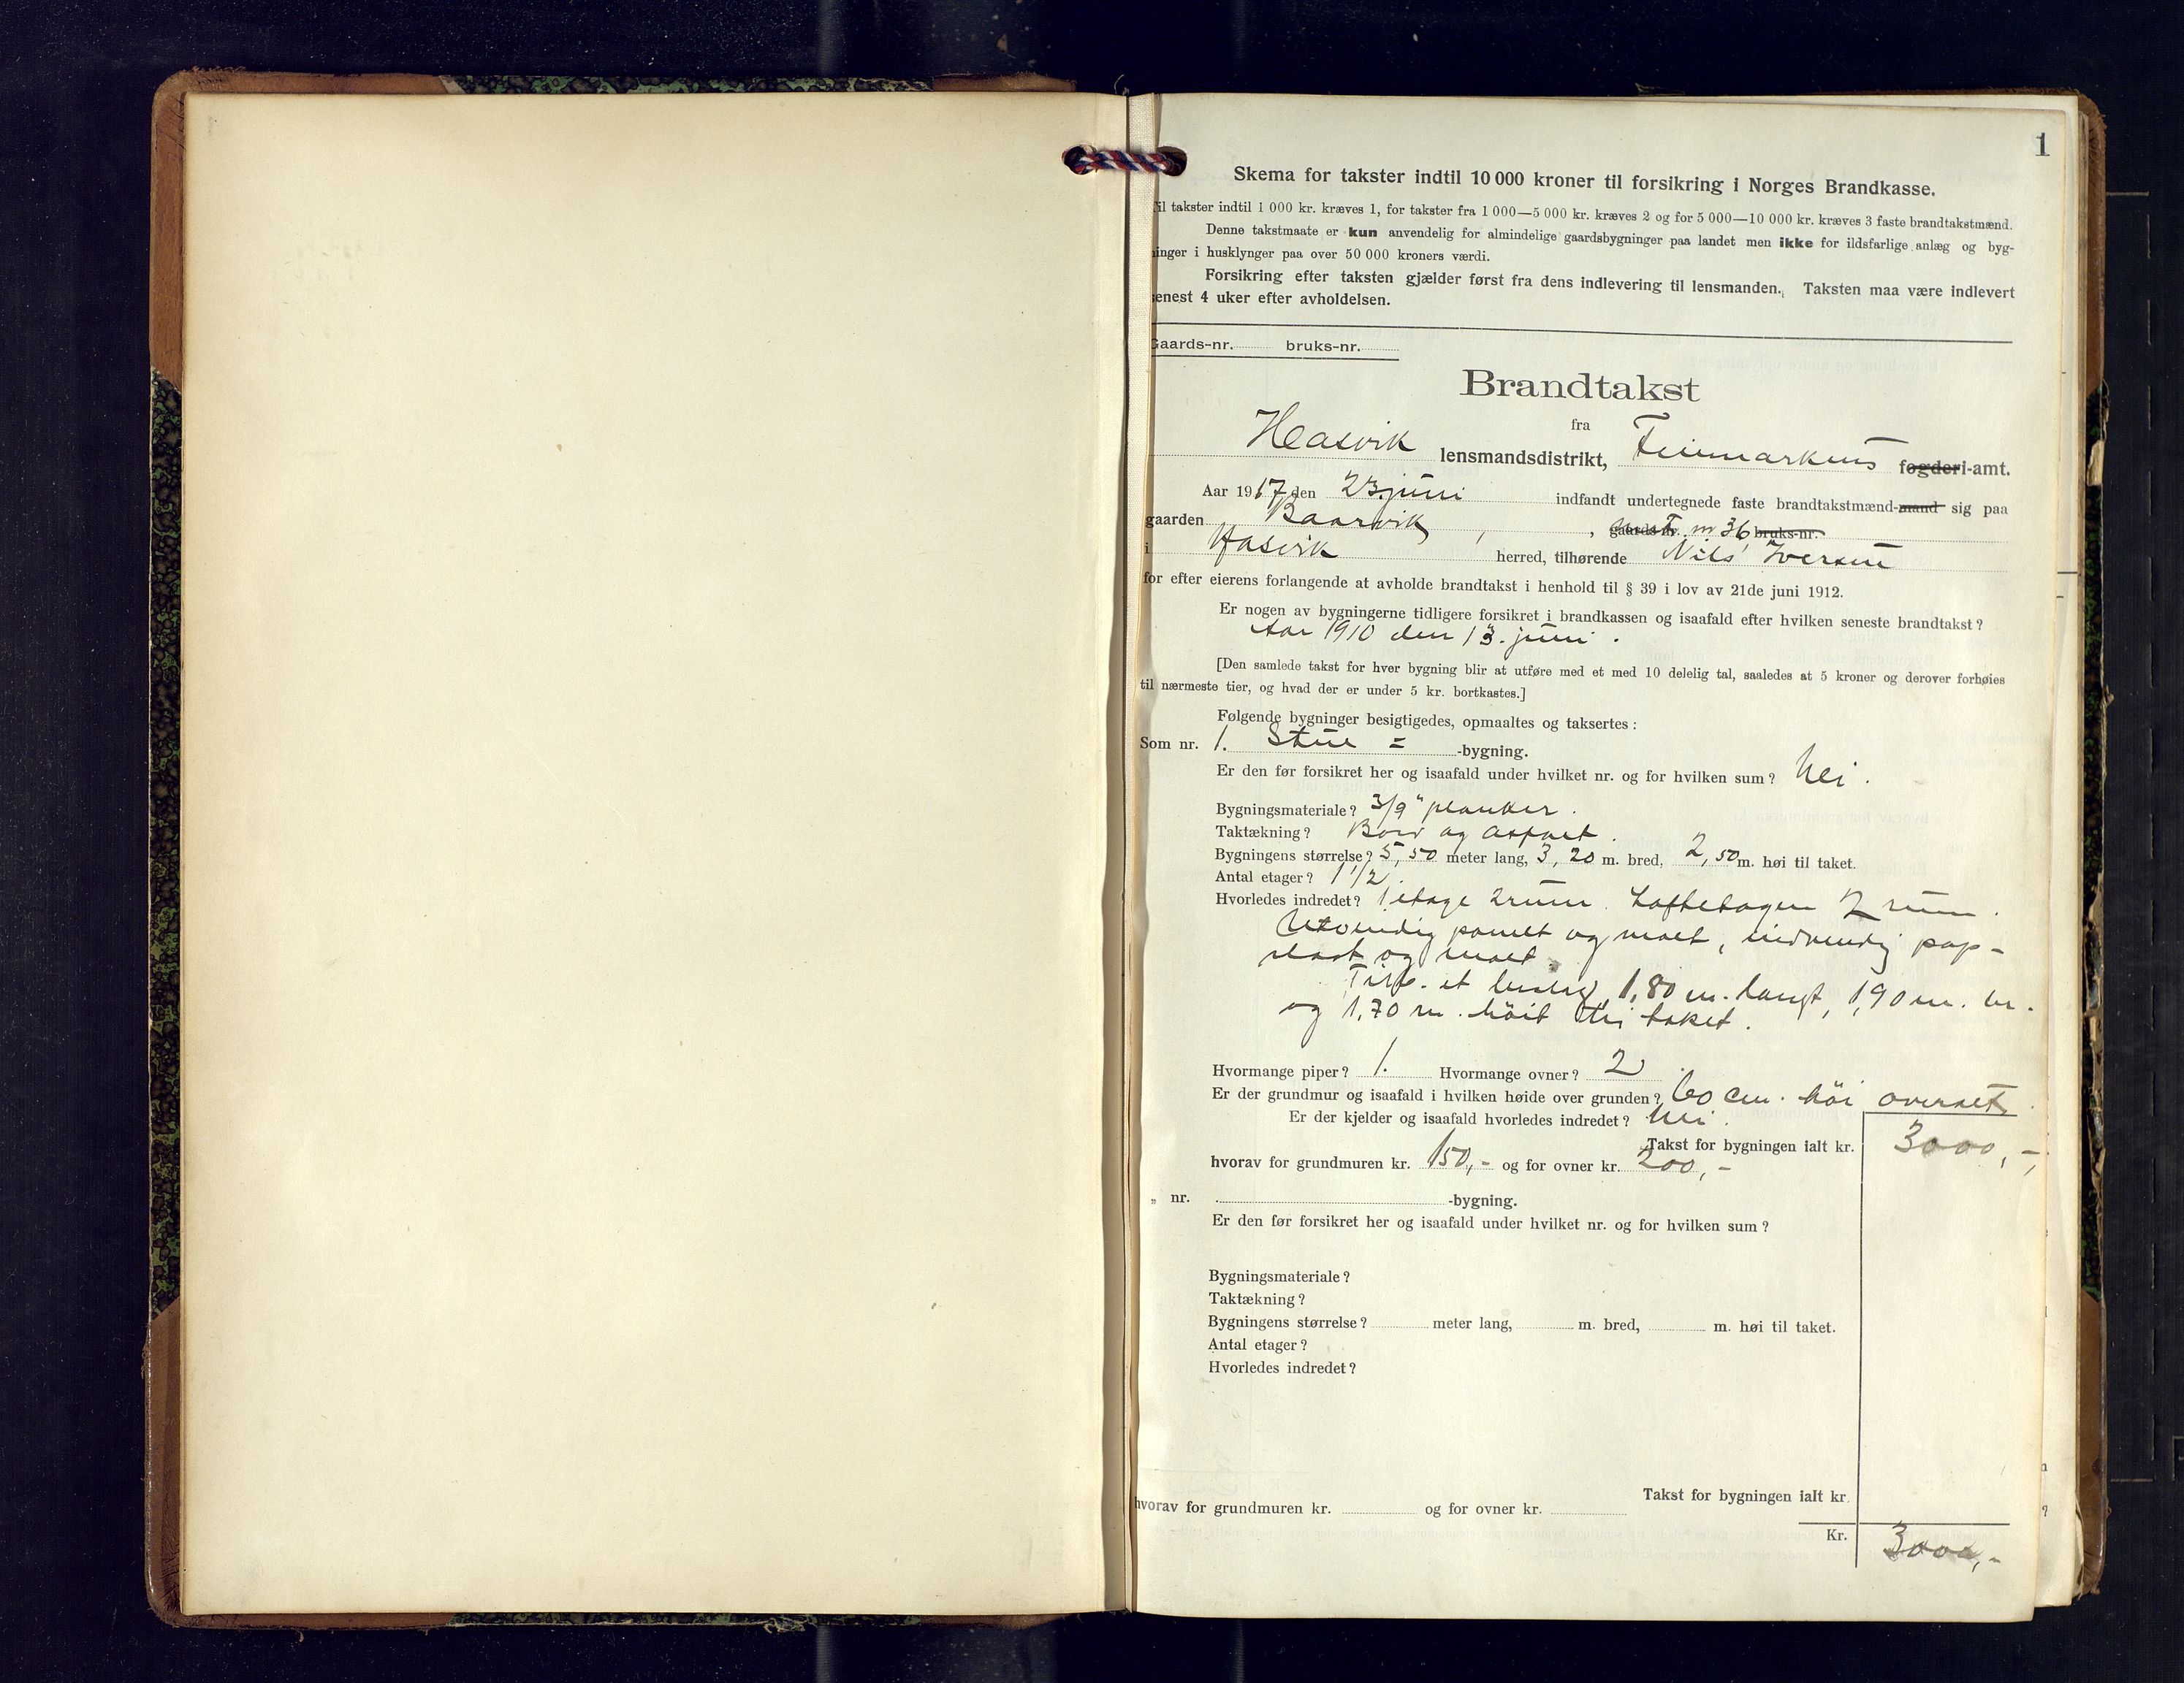 1
Skema for takster indtil 10 000 kroner til forsikring i Norges Brandkasse.
il takster indtil 1 000 kr. kræves 1, for takster fra 1 000—5 000 kr. kræves 2 og for 5 000—10 000 kr. kræves 3 faste brandtakstmænd.
Denne takstmaate er kun anvendelig for almindelige gaardsbygninger paa landet men ikke for ildsfarlige anlæg og byg-
ninger i husklynger paa over 50 000 kroners værdi.
Forsikring efter taksten gjælder først fra dens indlevering til lensmanden. Taksten maa være indlevert
senest 4 uker efter avholdelsen.
Gaards-nr. bruks-nr.
Brandtakst
fra
Hasvik lensmandsdistrikt, Finmarkens fogderi-amt.
Aar 1917 den 23 juni indfandt undertegnede faste brandtakstmænd-mand sig paa
gaarden Baarvik , , gaards-nr. 36 bruks-nr.
i Hasvik herred, tilhørende Nils Iversen
for efter eierens forlangende at avholde brandtakst i henhold til § 39 i lov av 21de juni 1912.
Er nogen av bygningerne tidligere forsikret i brandkassen og isaafald efter hvilken seneste brandtakst?
Aar 1910 den 13. juni.
[Den samlede takst for hver bygning blir at utføre med et med 10 delelig tal, saaledes at 5 kroner og derover forhøies
til nærmeste tier, og hvad der er under 5 kr. bortkastes.]
Følgende bygninger besigtigedes, opmaaltes og taksertes:
Som nr. 1. Stue = -bygning.
Er den før forsikret her og isaafald under hvilket nr. og for hvilken sum? Nei.
Bygningsmateriale? 3/9" planker.
Taktækning? Bord og asfalt.
Bygningens størrelse? 5,50 meter lang, 3,20 m. bred, 2,50 m. høi til taket.
Antal etager? 1 1/2.
Hvorledes indredet? 1 etage 2 rum. Loftetagen 2 rum.
Utvendig panelt og malt, indvendig pap-
slaat og malt.
et bislag 1,80 m. langt, 1,90 m. br.
og 1,70 m. höit til taket.
Hvormange piper? 1. Hvormange ovner? 2
Er der grundmur og isaafald i hvilken høide over grunden? 60 cm. höi
Er der kjelder og isaafald hvorledes indredet? Nei.
Takst for bygningen ialt kr. 3000,-
hvorav for grundmuren kr. 150,- og for ovner kr. 200,-
„ nr. -bygning.
Er den før forsikret her og isaafald under hvilket nr. og for hvilken sum?
Bygningsmateriale?
Taktækning?
Bygningens størrelse? meter lang, m. bred, m. høi til taket.
Antal etager?
Hvorledes indredet?
Takst for bygningen ialt kr.
hvorav for grundmuren kr. og for ovner kr.
Kr. 3000,-